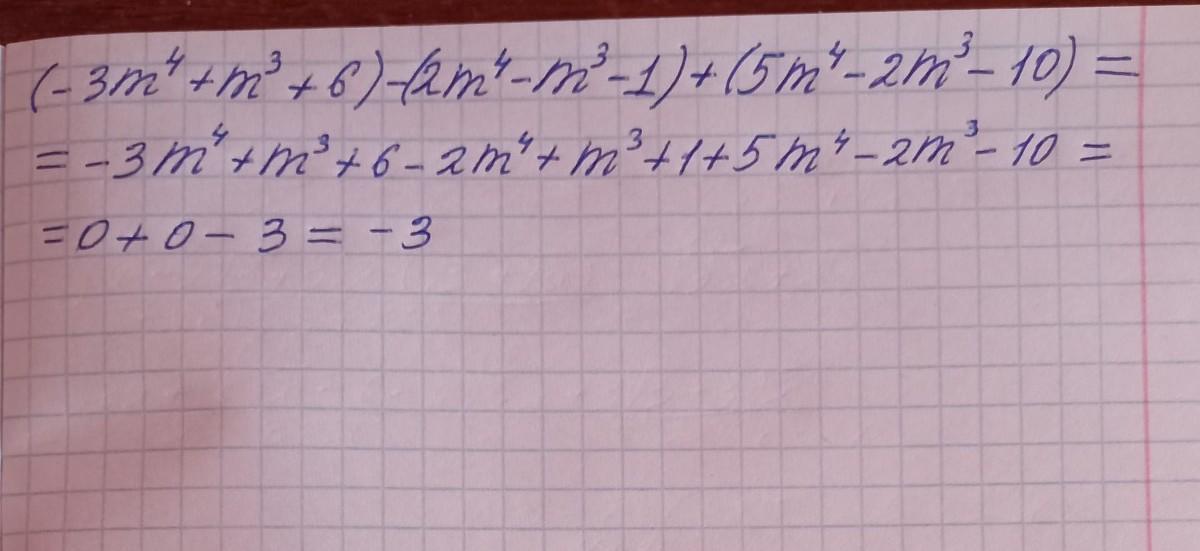 (-3m⁴+m³+6)-(2m⁴-m³-1)+(5m⁴-2m³-10)=
=-3m⁴+m³+6-2m⁴+m³+1+5m⁴-2m³-10=
=0+0-3=-3